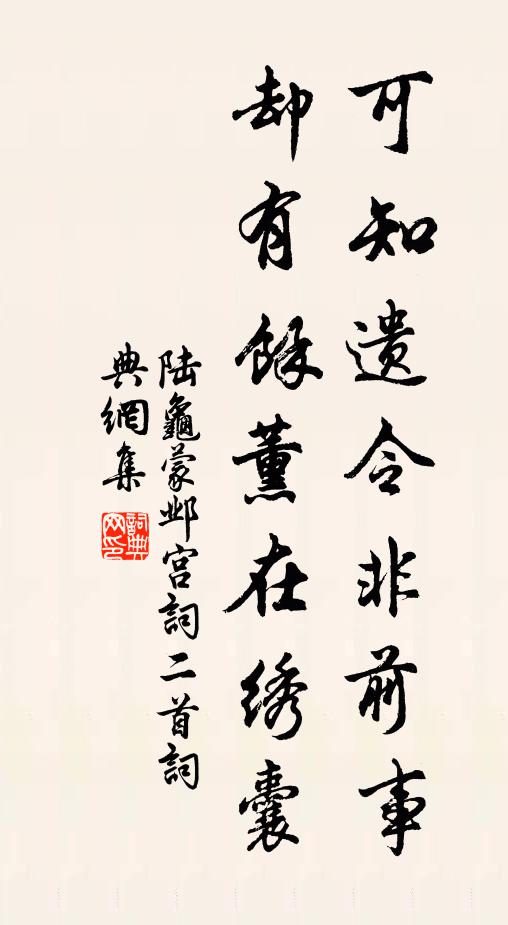 可知遗令非前事
却有餘薰在绣囊
陆龜蒙邺宫詞二首詞
典網集
詞典网印